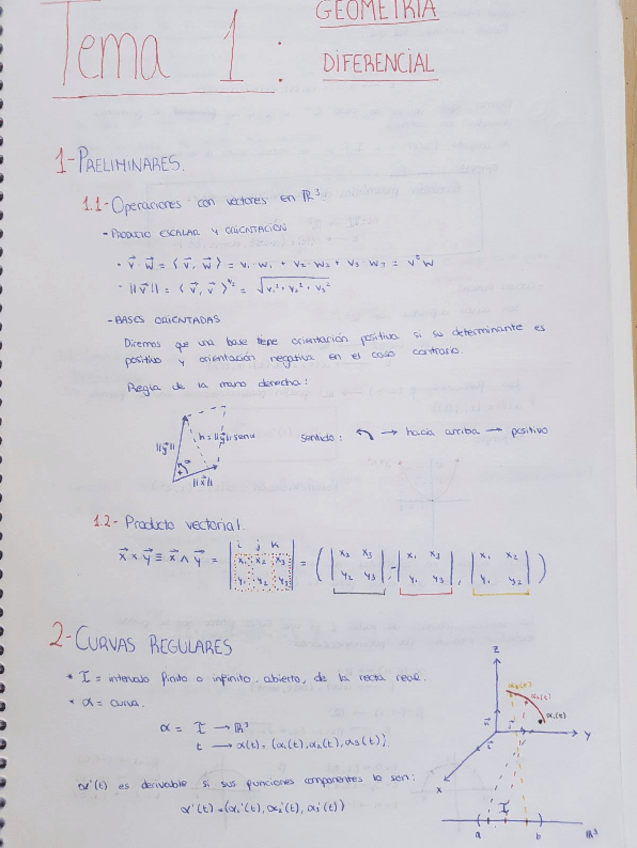 Tema 1:
GEOMETRIA
DIFERENCIAL
1-PRELIMINARES.
1.1-Operaciones con vectores en ℝ³:
- PRODUCTO ESCALAR Y ORIENTACIÓN
· v⃗ w⃗ = ⟨v⃗, w⃗⟩ = v₁·w₁ + v₂·w₂ + v₃·w₃ = vᵗw
· ||v⃗|| = ⟨v⃗, v⃗⟩^½ = √(v₁² + v₂² + v₃²)
- BASES ORIENTADAS
Diremos que una base tiene orientación positiva si su determinante es
positivo y orientación negativa en el caso contrario.
Regla de la mano derecha:
||y⃗|| h = ||y⃗|| senα
α
||x⃗||
sentido: ↶ → hacia arriba → positivo
1.2- Producto vectorial.
i j k
x⃗ × y⃗ ≡ x⃗ ∧ y⃗ = | x₁ x₂ x₃ | = ( | x₂ x₃ | , - | x₁ x₃ | , | x₁ x₂ | )
y₁ y₂ y₃ y₂ y₃ y₁ y₃ y₁ y₂
2-CURVAS REGULARES
* I = intervalo finito o infinito, abierto, de la recta real.
* α = curva.
α = I → ℝ³
t → α(t) = (α₁(t), α₂(t), α₃(t))
α'(t) es derivable si sus funciones componentes lo son:
α'(t) = (α₁'(t), α₂'(t), α₃'(t))
z
α₃(t)
α₂(t)
α₁(t)
y
x
I
a b ℝ³